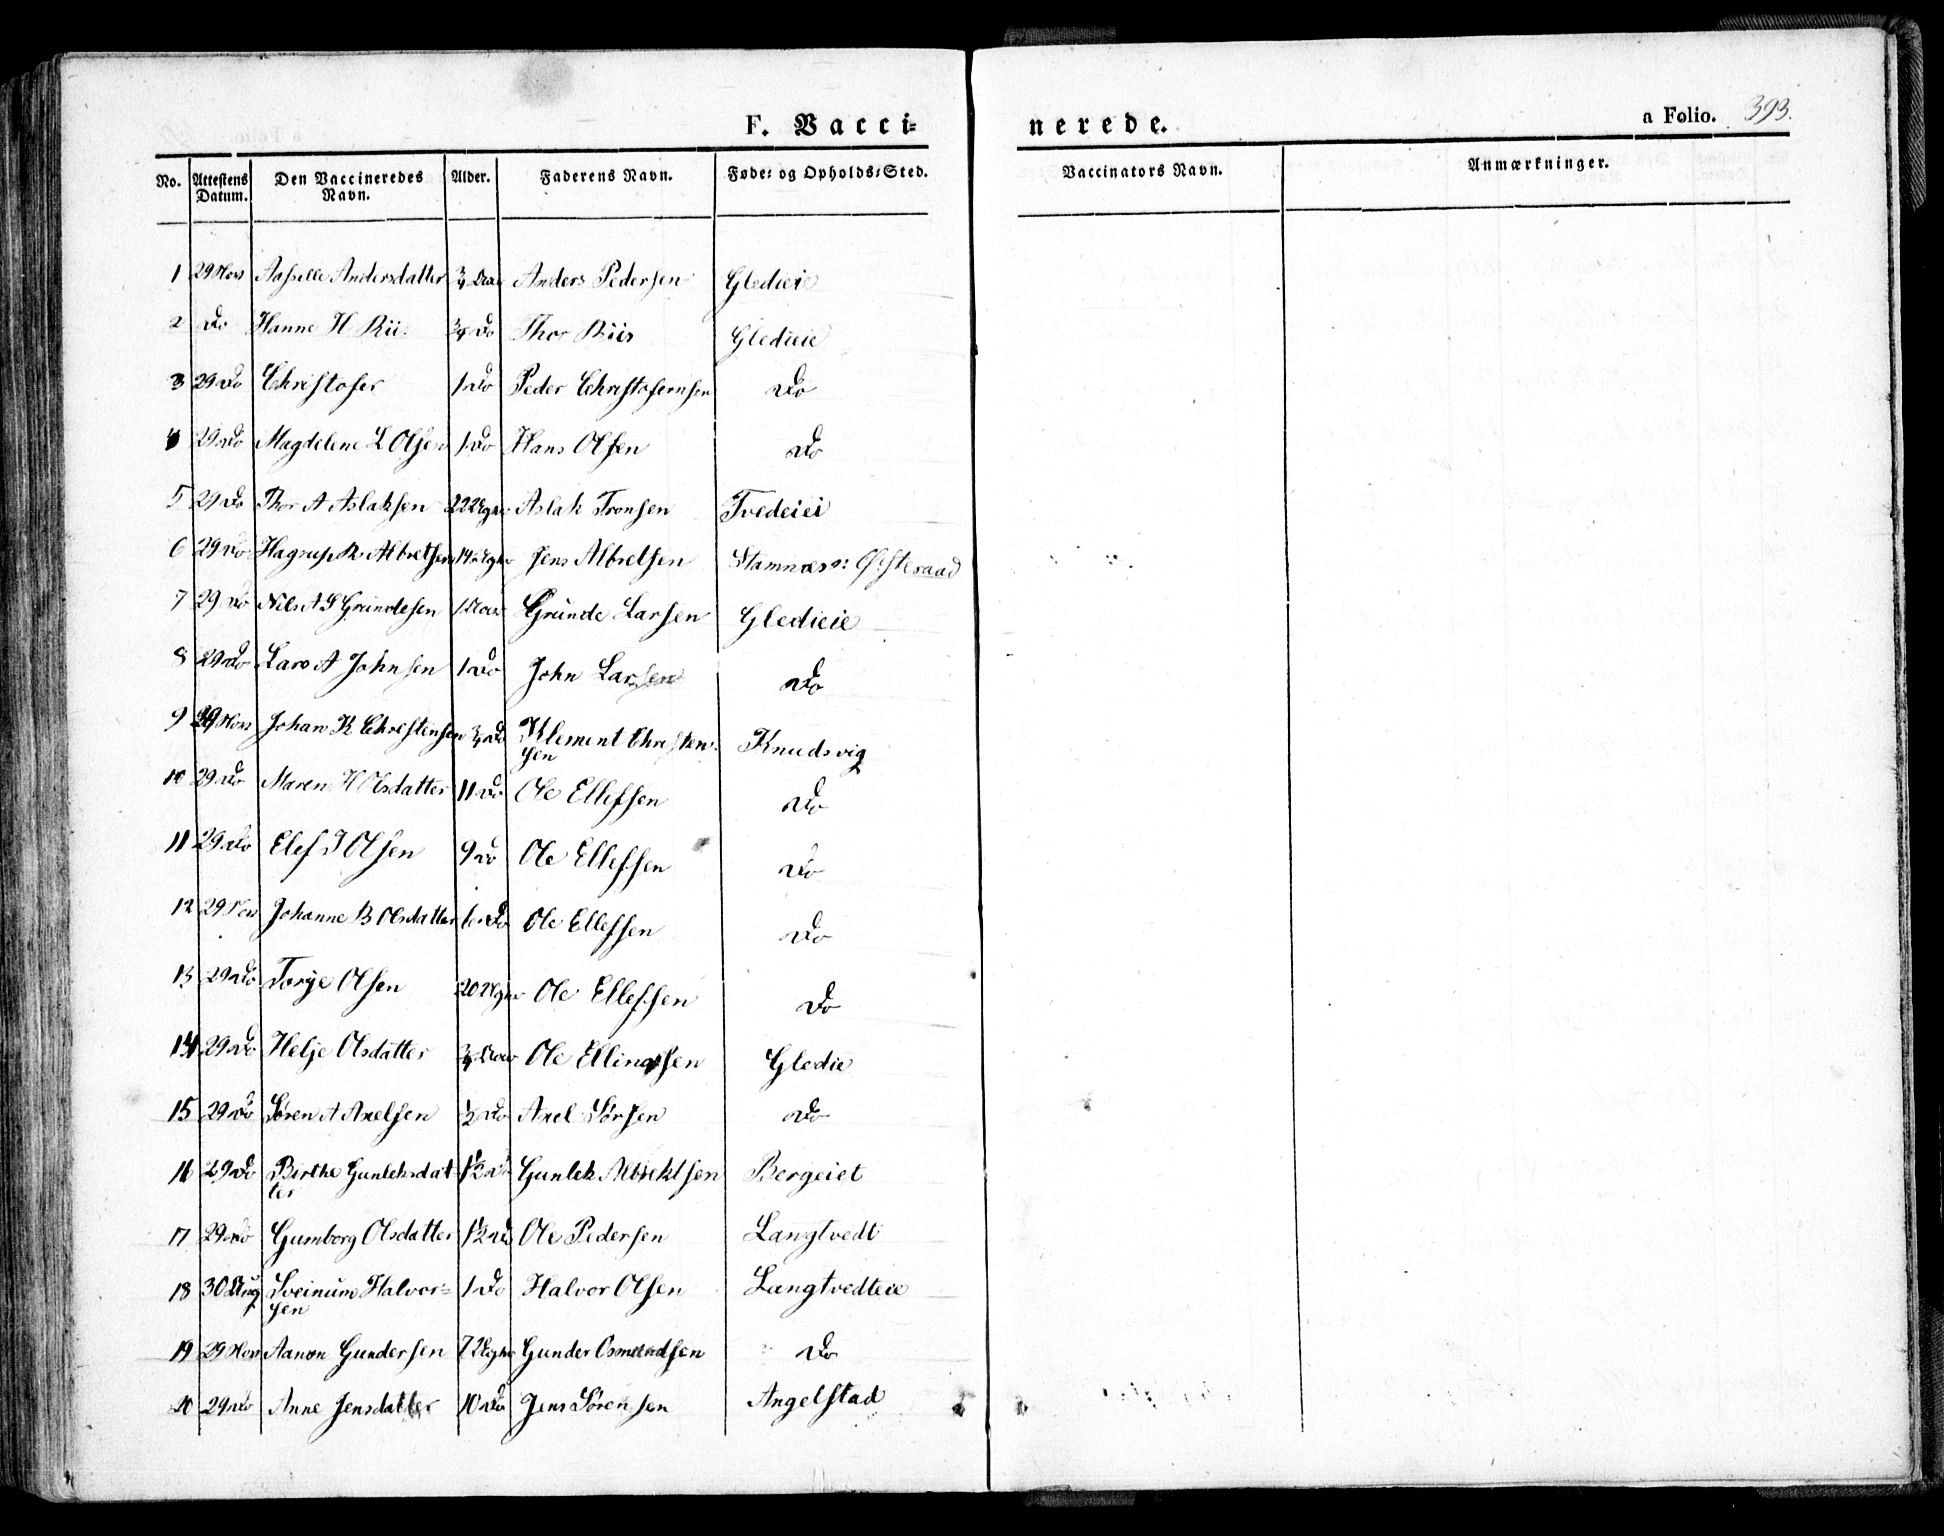 F. Vacci-
nerede.
a Folio. 393.
No. Attestens Datum. Den Vaccineredes Navn. Alder. Faderens Navn. Føde- og Opholds-Sted. Vaccinators Navn. Anmærkninger.
1 29 Nov Andersdatter 3/4 Aar Anders Pedersen Gledieie
2 Do Hanne H Rii 3/4 Do Thor Riis Gledieie
3 29 Do Christofer 1 Do Peder Christofersen Do
4 29 Do Magdelene L Olsen 1 Do Hans Olsen Do
5 29 Do Thor A Aslaksen 22 Uger Aslak Tronsen Tvedeiei
6 29 Do Hagrup R Albretsen 14 Uger Jens Albretsen Stamnæs
7 29 Do Nils A G Grundesen 1 Aar Grunde Larsen Gledieie
8 29 Do Lars A Johnsen 1 Do John Larsen Do
9 29 Nov Johan K Christensen 3/4 Do Klement Christen-
sen Knudsvig
10 29 Do Maren H Olsdatter 11 Do Ole Ellefsen Do
11 29 Do Elef J Olsen 9 Do Ole Ellefsen Do
12 29 Nov Johanne B Olsdatter 6 Do Ole Ellefsen Do
13 29 Do Torje Olsen 20 Uger Ole Ellefsen Do
14 29 Do Helje Olsdatter 3/4 Aar Ole Ellingsen Gledie
15 29 Do Søren A Axelsen 1/2 Do Axel Sørsen Do
16 29 Do Birthe Gunleksdat-
ter 1 1/2 Do Gunlek Albrektsen Bergeiet
17 29 Do Gumborg Olsdatter 1 1/2 Do Ole Pedersen Langtvedt
18 30 Aug Sveinum Halvor-
sen 1 Do Halvor Olsen Langtvedteie
19 29 Nov Aanon Gundersen 7 Uger Gunder Osmundsen Do
20 29 Do Anne Jensdatter 10 Do Jens Sørensen Angelstad